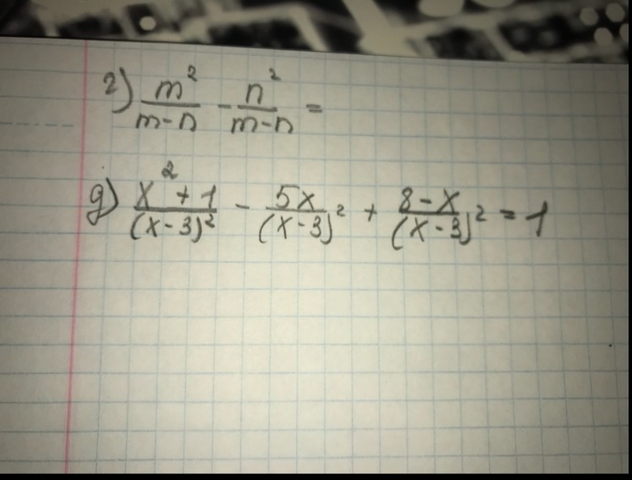 г) m²/(m-n) - n²/(m-n) =
g) (x²+1)/(x-3)² - 5x/(x-3)² + (8-x)/(x-3)² = 1